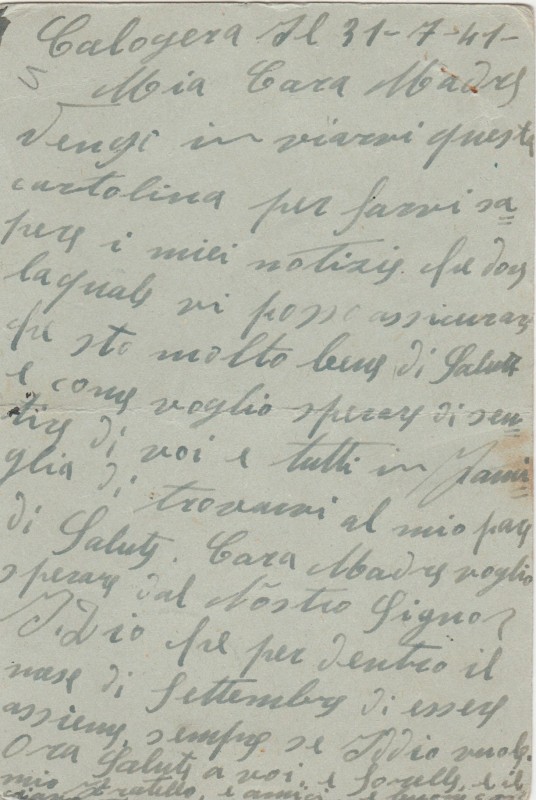 Calogera Il 31-7-41-
Mia Cara Madre
Vengo in viarvi questa
cartolina per farvi sa=
pere i miei notizie che dove
laquale vi posso assicurare
che sto molto bene di Salute
e come voglio sperare di sen=
tire di voi e tutti in Fami=
glia di trovarvi al mio pare
di Salute. Cara Madre voglio
sperare dal Nostro Signor
Iddio che per dentro il
mese di Settembre di essere
assieme sempre se Iddio vuole.
Ora Saluto a voi e Sorelle e il
mio Fratello, e amici